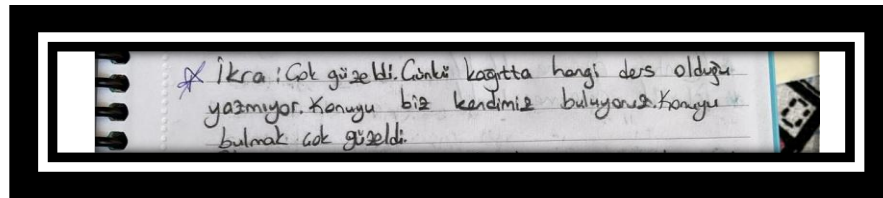 İkra: Çok güzeldi. Çünkü kağıtta hangi ders olduğu
yazmıyor. Konuyu biz kendimiz buluyoruz. Konuyu
bulmak çok güzeldi.